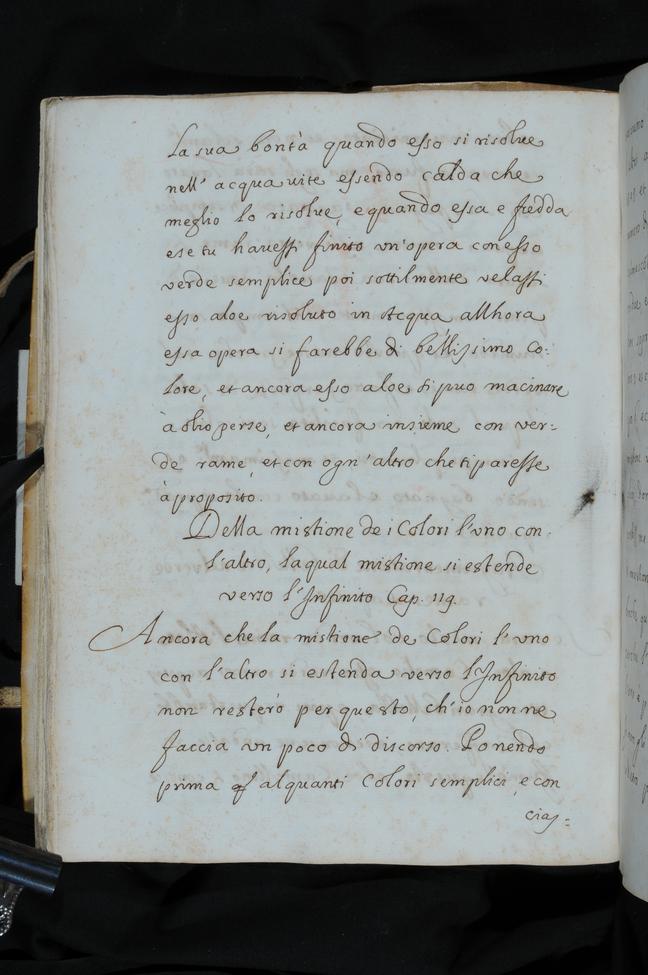 La sua bontà quando esso si risolue
nell' acqua uite essendo calda che
meglio lo risolue, e quando essa e fredda
e se tu hauessi finito vn'opera con esso
verde semplice poi sottilmente velassi
esso aloe risoluto in Acqua allhora
essa opera si farebbe di bellissimo co:
lore, et ancora esso aloe si puo macinare
à olio perse, et ancora insieme con ver:
de rame, et con ogn'altro che ti paresse
à proposito.
Della mistione de i Colori l'vno con
l'altro, laqual mistione si estende
verso l'Infinito Cap. 119.
Ancora che la mistione de Colori l'vno
con l'altro si estenda verso l'Infinito
non resterò per questo, ch'io non ne
faccia vn poco di discorso. Ponendo
prima alquanti Colori semplici, e con
cias: